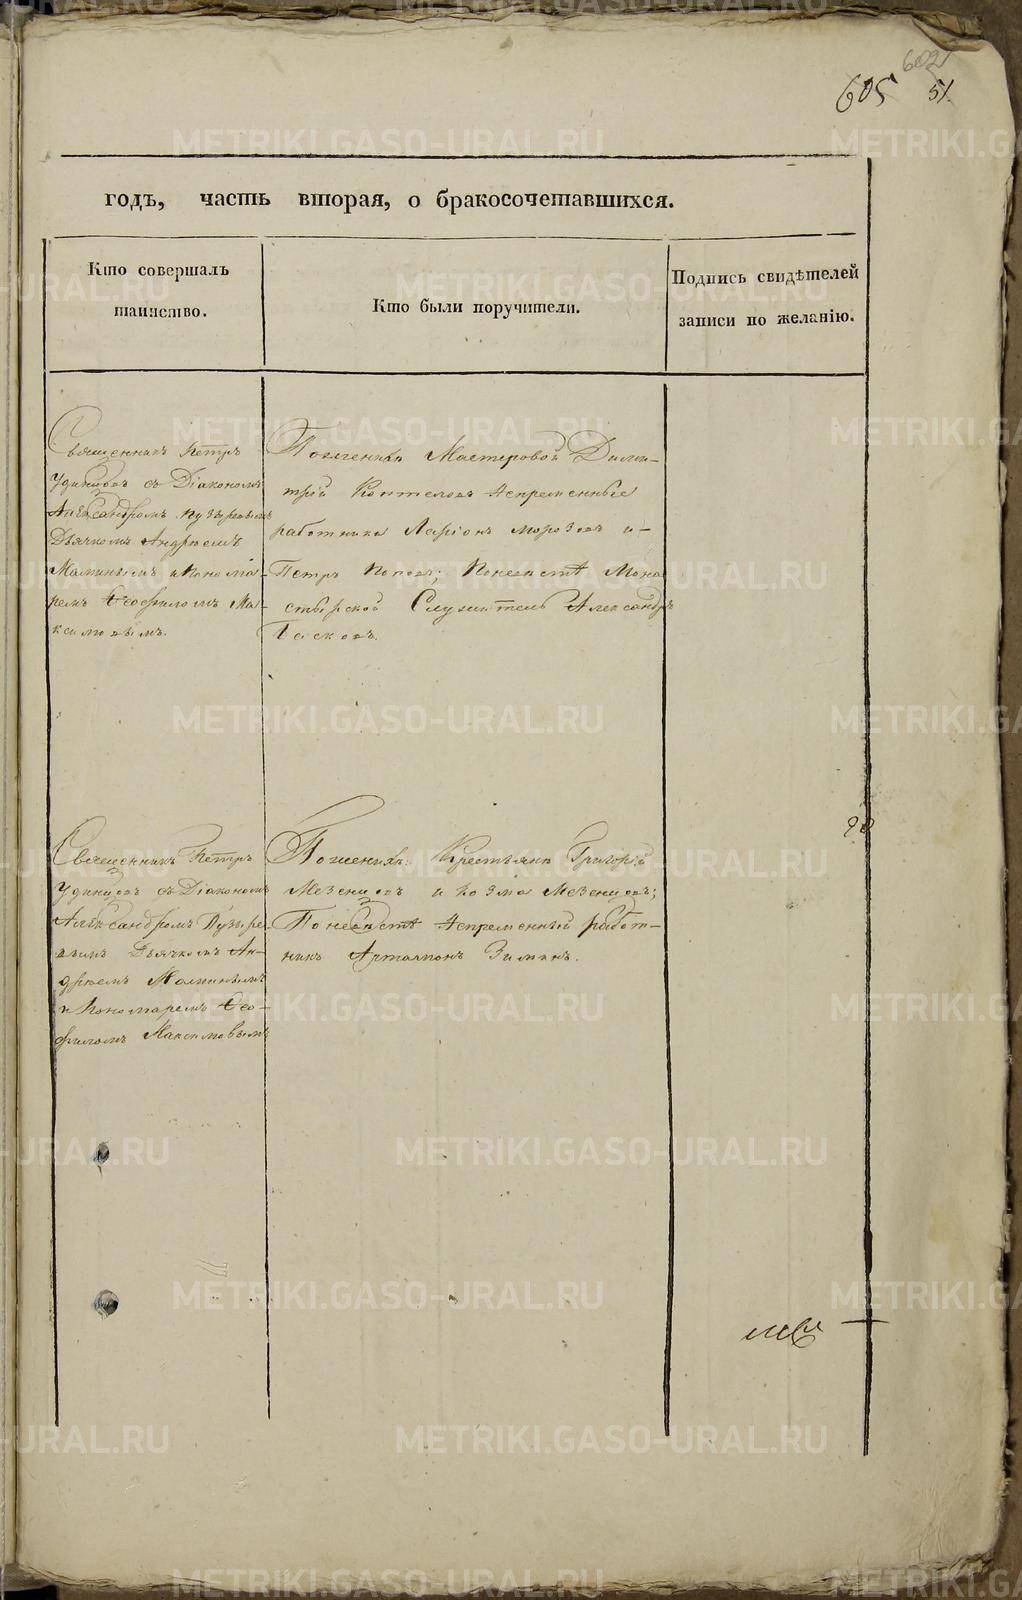 602
605 51.
годъ, часть вторая, о бракосочетавшихся.
Кто совершалъ
таинство.
Кто были поручители.
Подпись свидѣтелей
записи по желанію.
Священникъ Петръ
Удинцовъ съ Діакономъ
Александромъ Пузыревымъ
Дьячкомъ Андреемъ
Малинымъ и Понома-
ремъ Ѳеофиломъ Ма-
ксимовымъ.
По женихѣ Мастеровой Дими-
трій Коптеловъ Непременные
работники Ларіонъ Морозовъ и
Петръ Поповъ; По невѣстѣ Мона-
стырской Служитель Александръ
Басковъ.
Священникъ Петръ
Удинцовъ съ Діакономъ
Александромъ Пузыре-
вымъ Дьячкомъ Ан-
дреемъ Малинымъ
и Пономаремъ Ѳео-
филомъ Максимовымъ
По женихѣ: Крестьяне Григорій
Мезенцовъ и Козма Мезенцовъ;
По невѣстѣ Непременный работ-
никъ Артамонъ Зиминъ.
METRIKI.GASO-URAL.RU